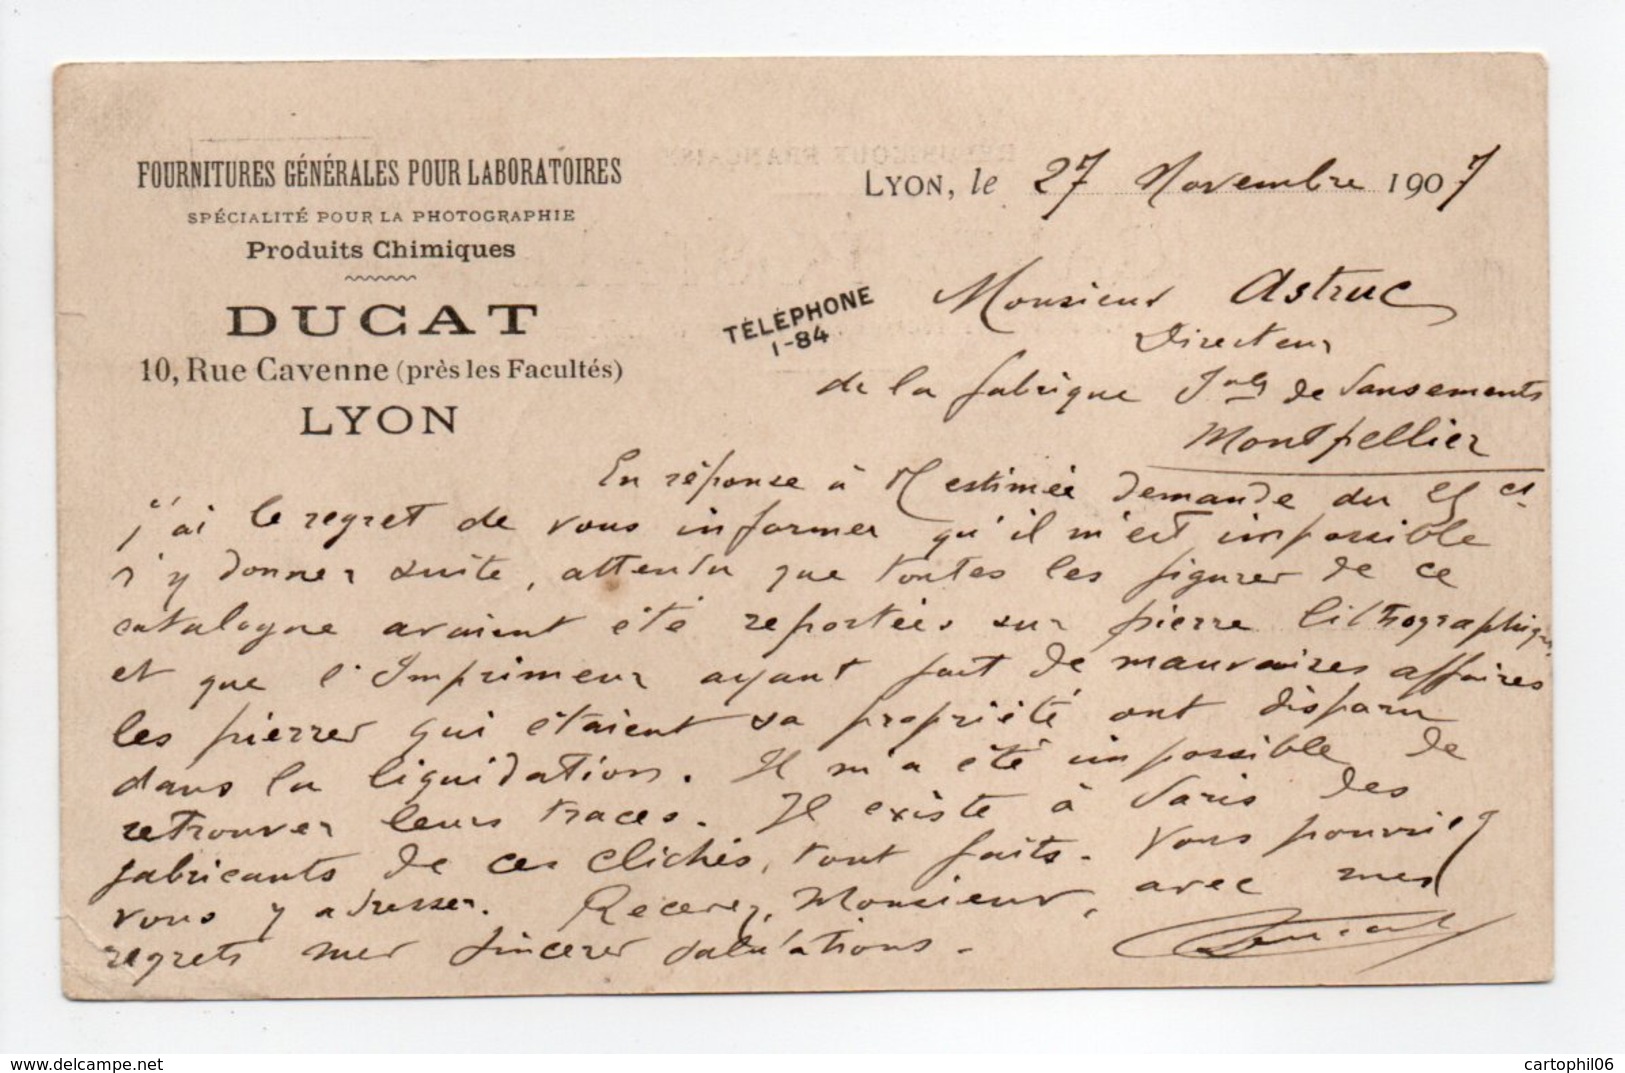 FOURNITURES GÉNÉRALES POUR LABORATOIRES
SPÉCIALITÉ POUR LA PHOTOGRAPHIE
Produits Chimiques
DUCAT
10, Rue Cavenne (près les Facultés)
LYON
TÉLÉPHONE
1-84
LYON, le 27 Novembre 1907
Monsieur Astruc
Directeur
de la fabrique Gale de Pansements
Montpellier
En réponse à V/ estimée demande du 25 ct
j'ai le regret de vous informer qu'il m'est impossible
d'y donner suite, attendu que toutes les figures de ce
catalogue avaient été reportées sur pierre lithographique,
et que l'Imprimeur ayant fait de mauvaises affaires
les pierres qui étaient sa propriété ont disparu
dans la liquidation. Il m'a été impossible de
retrouver leurs traces. Il existe à Paris des
fabricants de ces clichés, tout faits. Vous pourriez
vous y adresser. Recevez, Monsieur, avec mes
regrets mes sincères salutations.
Ducat
www.delcampe.net
cartophil06